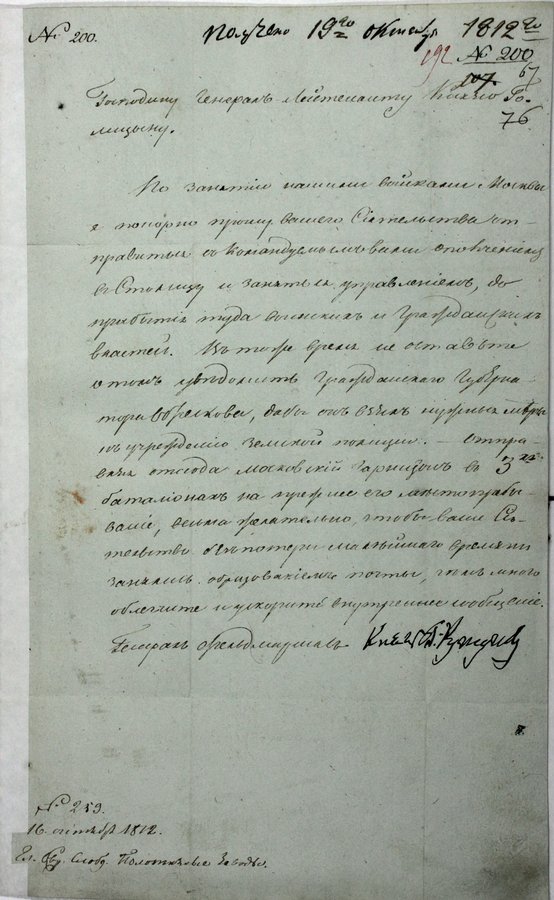 № 200.
Получено 19го октября 1812го
192
№ 200
107.
67
76
Господину Генералъ Лейтенанту Князю Го-
лицыну.
По занятіи нашими войсками Москвы
я покорно прошу вашего Сіятельства от-
правиться съ командуемымъ вами ополченіемъ
въ Столицу и заняться управленіемъ, до
прибытія туда воинскихъ и Гражданскихъ
властей. Въ тоже время не оставьте
о томъ увѣдомить Гражданскаго Губерна-
тора Обрескова, дабы онъ взялъ нужныя мѣры
къ учрежденію земской полиціи. — Отпра-
вивъ отсюда Московскій гарнизонъ въ 3хъ
баталіонахъ на прежнее его мѣстопребы-
ваніе, весьма желательно, чтобы ваше Сія-
тельство безъ потери малѣйшаго времени
занялись образованіемъ почты, чѣмъ много
облегчите и ускорите внутреннее сообщеніе.
Генералъ Фельдмаршалъ Князь Г. Кутузовъ
№ 253.
16. октября 1812.
Гл. Кв. Слобод. Полотняные Заводы.